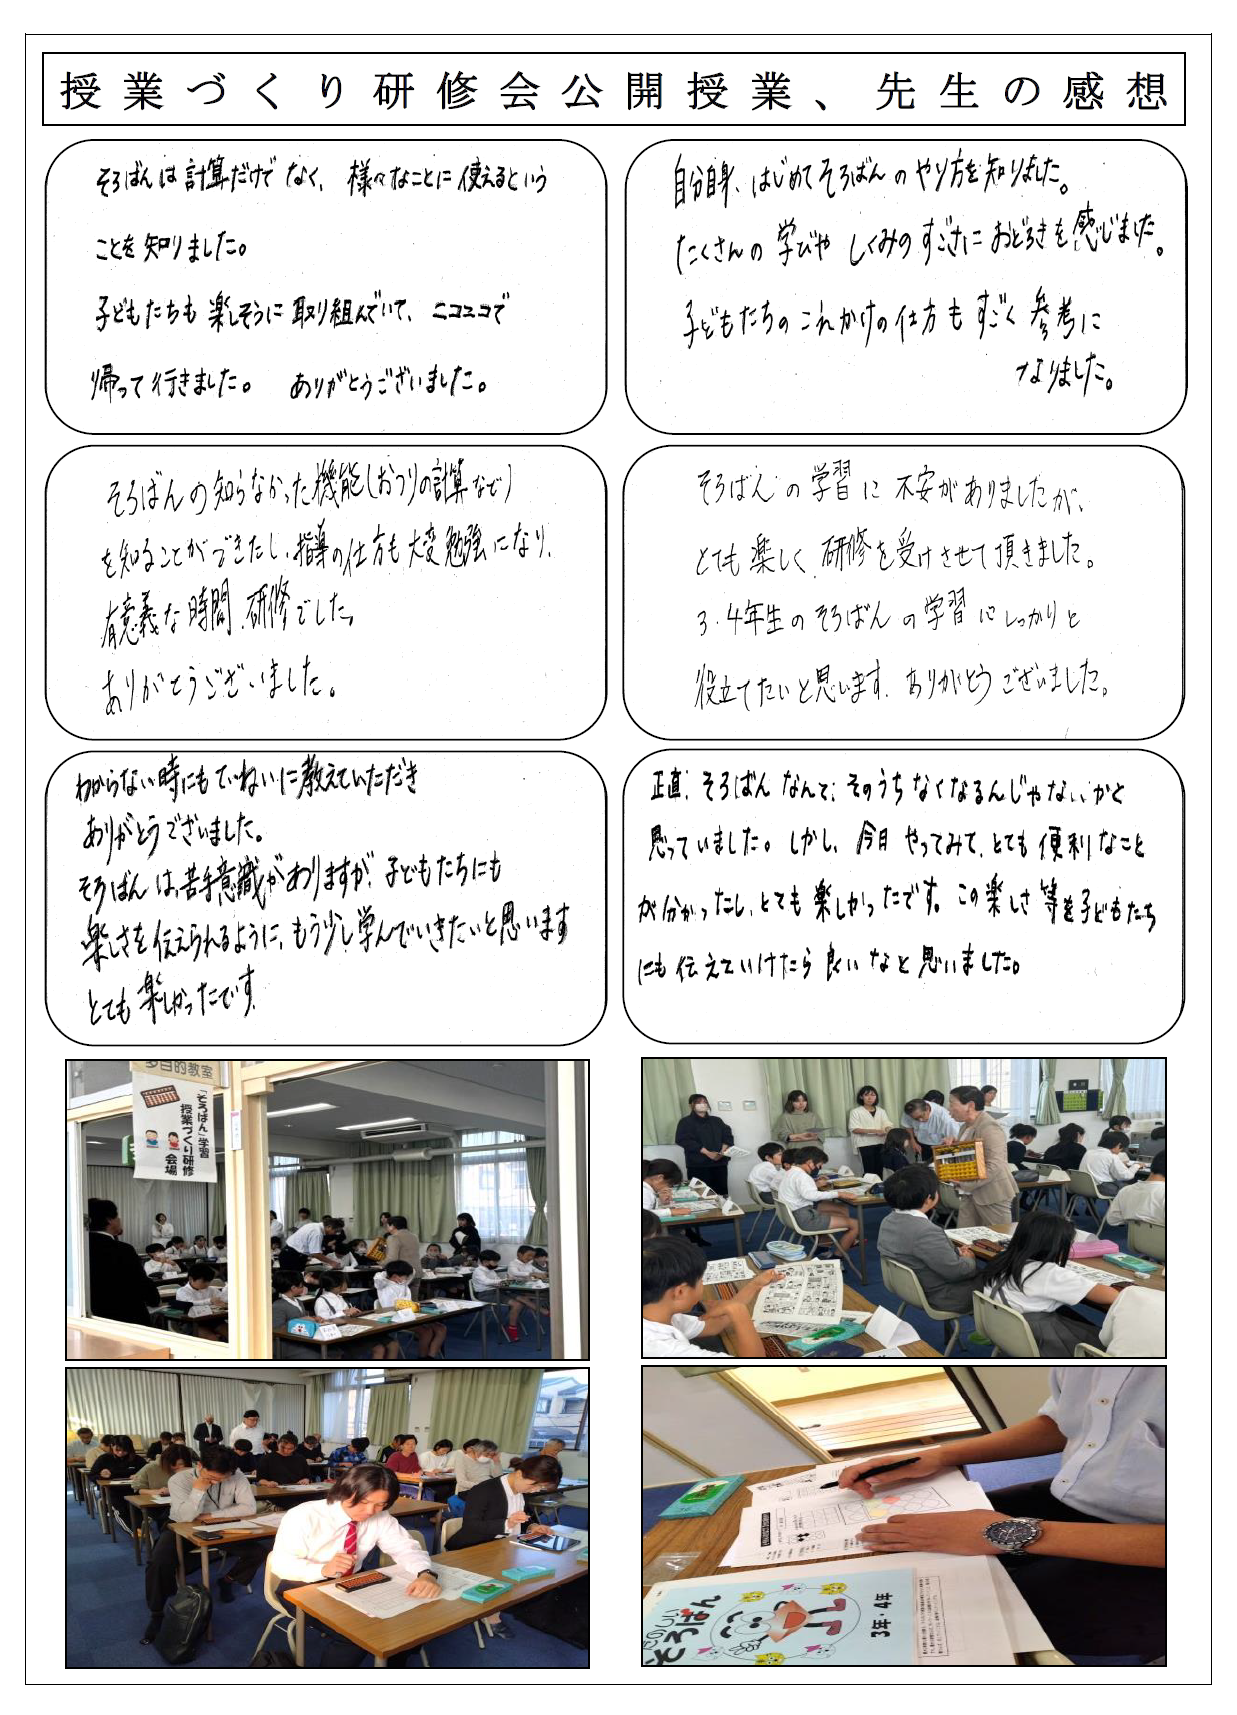 授業づくり研修会公開授業、先生の感想
そろばんは計算だけでなく、様々なことに使えるという
ことを知りました。
子どもたちも楽しそうに取り組んでいて、ニコニコで
帰って行きました。 ありがとうございました。
自分自身、はじめてそろばんのやり方を知りました。
たくさんの学びやしくみのすごさにおどろきを感じました。
子どもたちのこれかけの仕方もすごく参考に
なりました。
そろばんの知らなかった機能(おつりの計算など)
を知ることができたし、指導の仕方も大変勉強になり、
有意義な時間、研修でした。
ありがとうございました。
そろばんの学習に不安がありましたが、
とても楽しく研修を受けさせて頂きました。
3・4年生のそろばんの学習にしっかりと
役立てたいと思います。ありがとうございました。
わからない時にもていねいに教えていただき
ありがとうございました。
そろばんは、苦手意識がありますが、子どもたちにも
楽しさを伝えられるように、もう少し学んでいきたいと思います
とても楽しかったです。
正直、そろばんなんて、そのうちなくなるんじゃないかと
思っていました。しかし、今日やってみて、とても便利なこと
が分かったし、とても楽しかったです。この楽しさ等を子どもたち
にも伝えていけたら良いなと思いました。
多目的教室
「そろばん」学習
授業づくり研修
会場
たのしい
そろばん
3年・4年